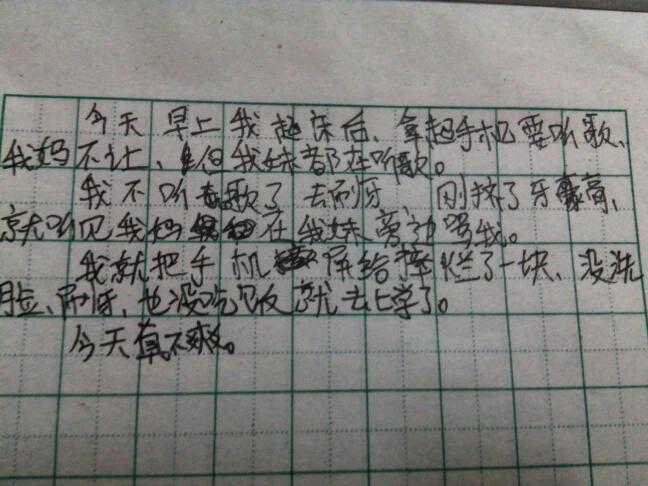 今天早上我起床后，拿起手机要听歌，
我妈不让，但我妹都在听歌。
我不听歌了去刷牙，刚挤了牙膏，
就听见我妈在我妹旁边骂我。
我就把手机屏给摔烂了一块，没洗
脸、刷牙，也没吃饭就去上学了。
今天真不爽。